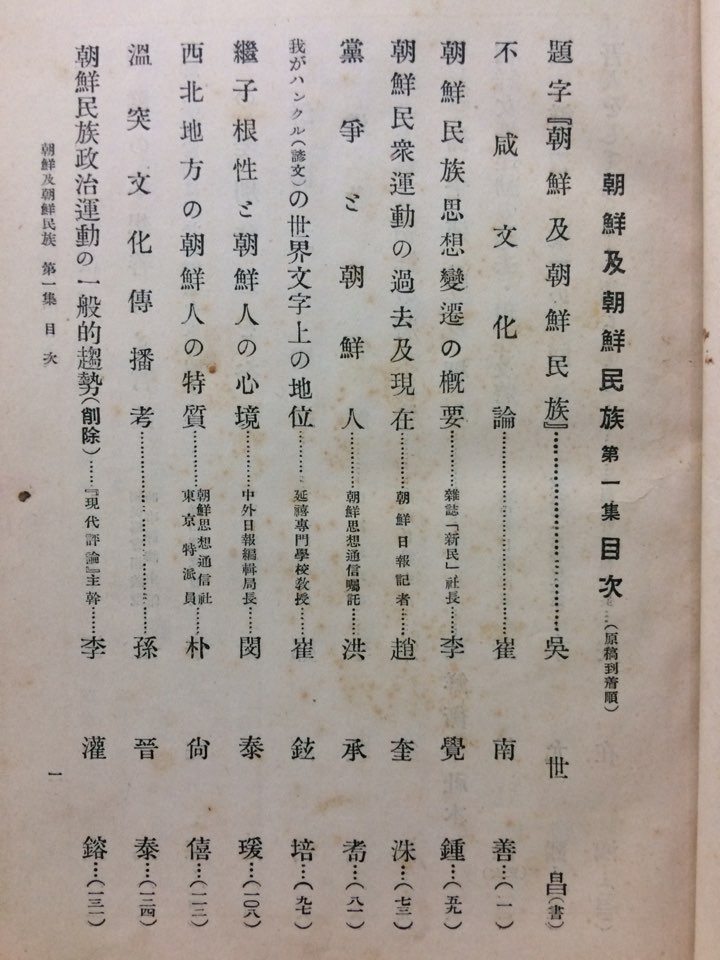 朝鮮及朝鮮民族 第一集 目次(原稿到着順)
題字『朝鮮及朝鮮民族』……………………吳世昌(書)
不咸文化論……………………崔南善…(一)
朝鮮民族思想變遷の概要……雜誌「新民」社長……李覺鍾…(五九)
朝鮮民衆運動の過去及現在……朝鮮日報記者……趙奎洙…(七三)
黨爭と朝鮮人……朝鮮思想通信囑託……洪承耈…(八一)
我がハンクル(諺文)の世界文字上の地位……延禧專門學校敎授……崔鉉培…(九七)
繼子根性と朝鮮人の心境……中外日報編輯局長……閔泰瑗…(一〇八)
西北地方の朝鮮人の特質……朝鮮思想通信社東京特派員……朴尙僖…(一一二)
溫突文化傳播考……………………孫晉泰…(一二四)
朝鮮民族政治運動の一般的趨勢(削除)……『現代評論』主幹……李灌鎔…(一三一)
朝鮮及朝鮮民族 第一集 目次
一